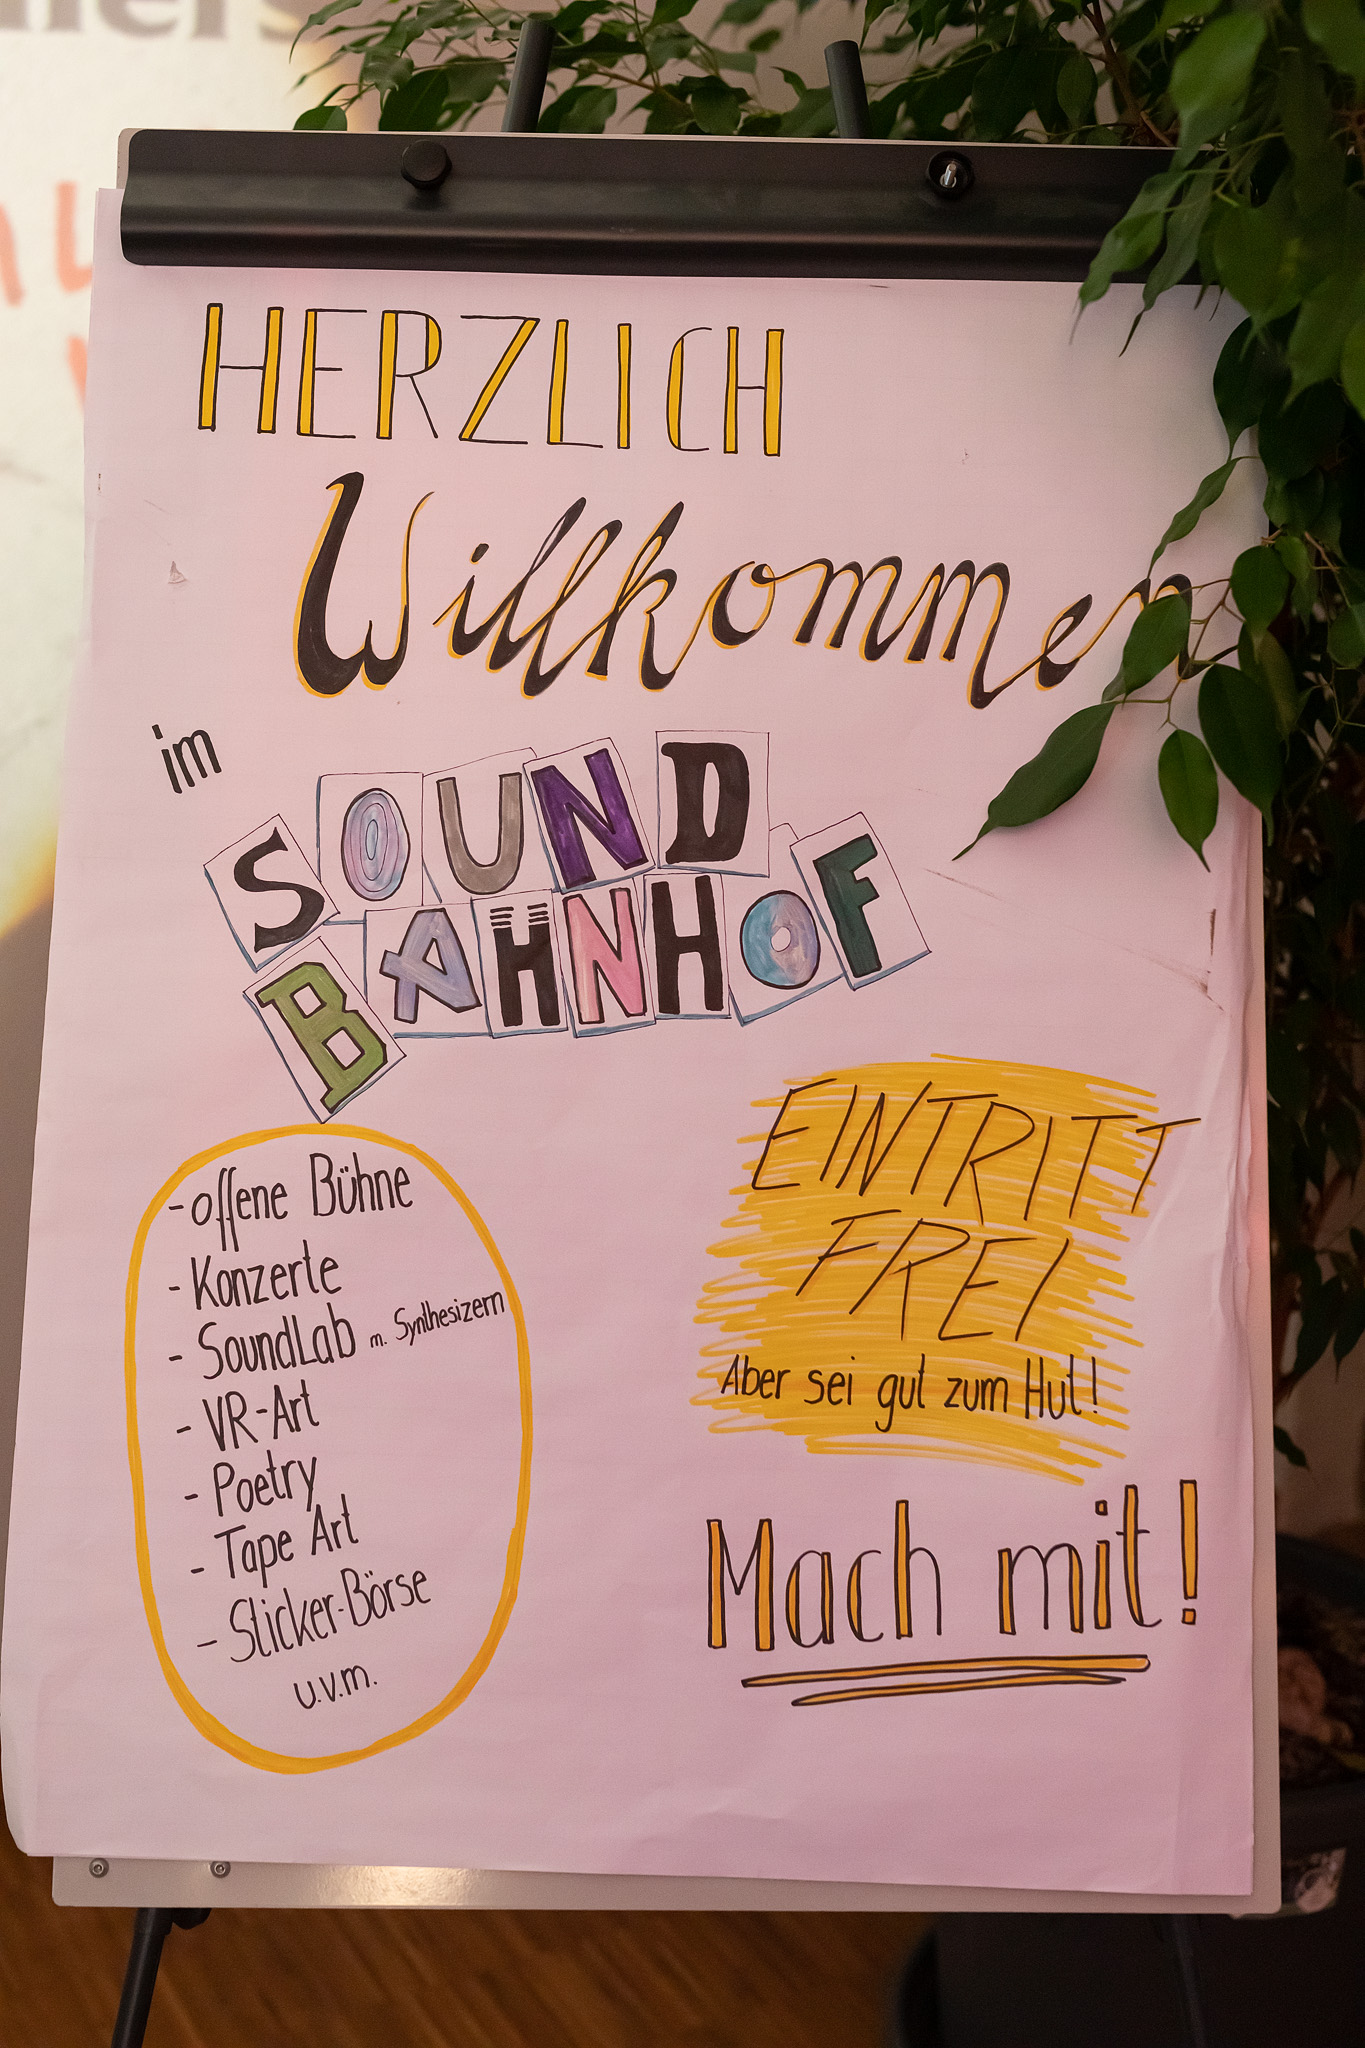 HERZLICH
Willkommen
im
SOUND
BAHNHOF
- offene Bühne
- Konzerte
- SoundLab m. Synthesizern
- VR-Art
- Poetry
- Tape Art
- Sticker-Börse
u.v.m.
EINTRITT
FREI
Aber sei gut zum Hut!
Mach mit!